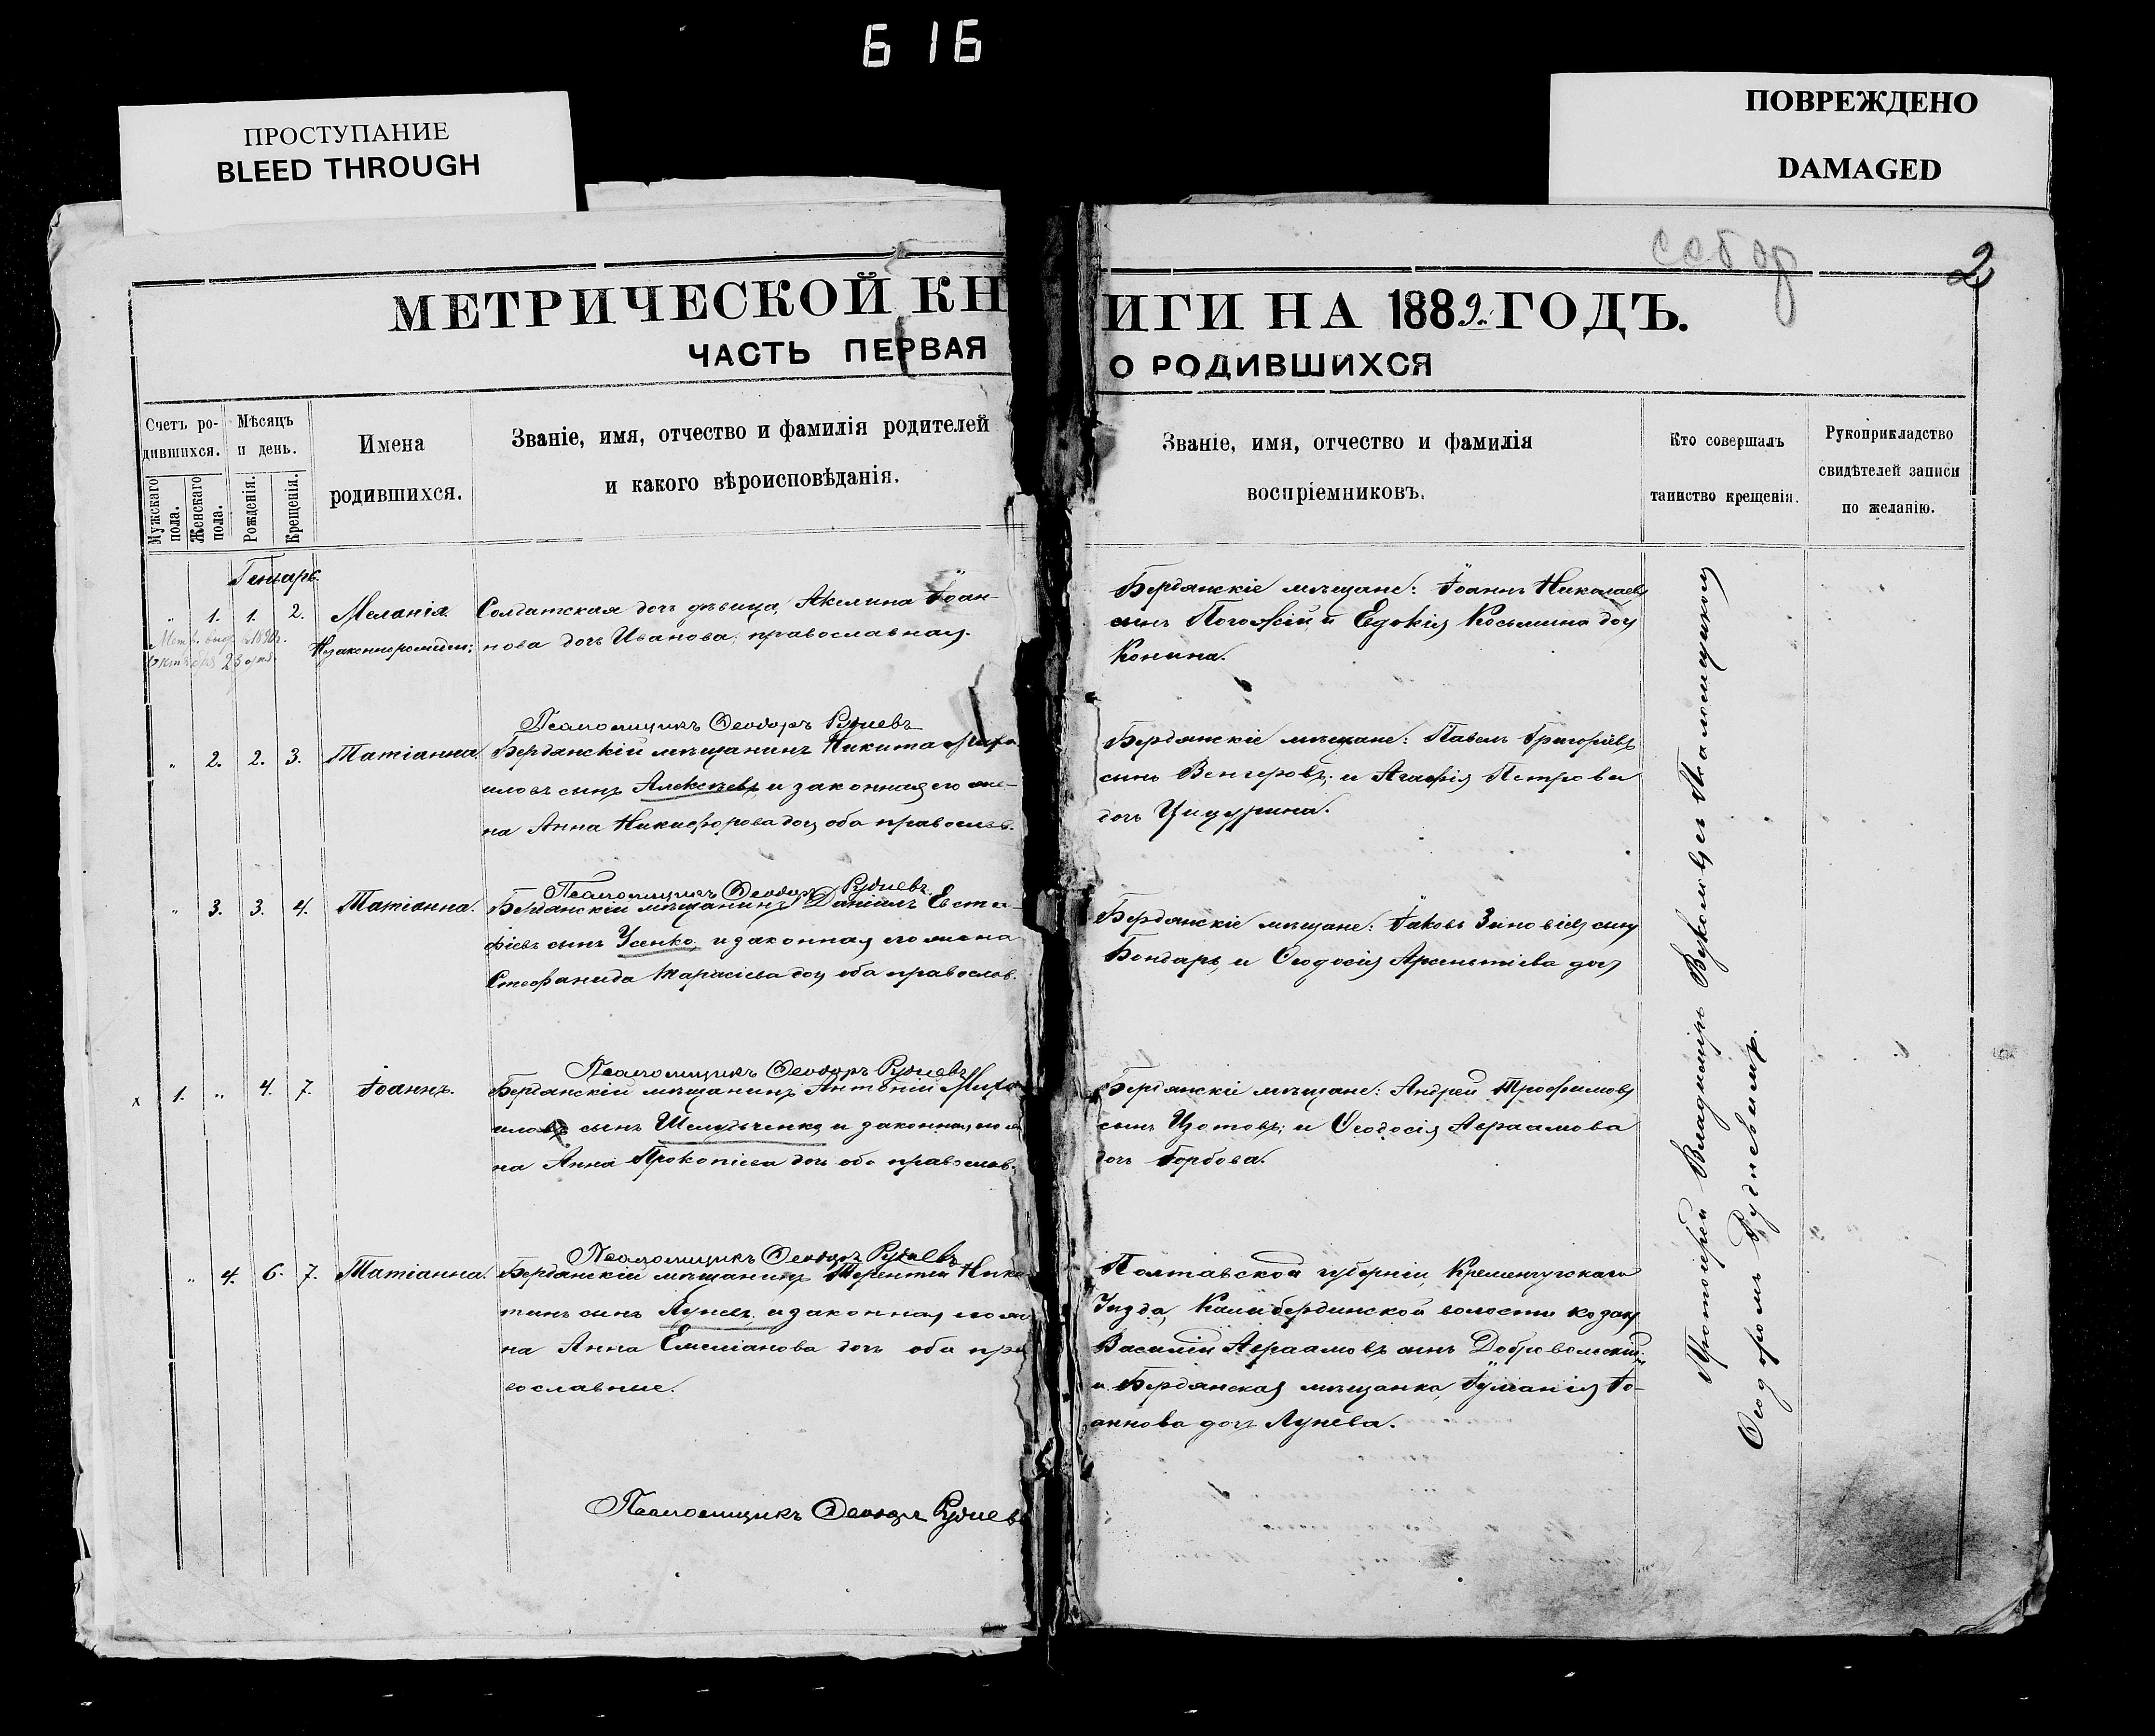 616
ПРОСТУПАНИЕ
BLEED THROUGH
ПОВРЕЖДЕНО
DAMAGED
собор
2
МЕТРИЧЕСКОЙ КНИГИ НА 1889 ГОДЪ.
ЧАСТЬ ПЕРВАЯ О РОДИВШИХСЯ
Счетъ ро-
дившихся.
Мужскаго пола.
Женскаго пола.
Мѣсяцъ
и день.
Рожденія.
Крещенія.
Имена
родившихся.
Званіе, имя, отчество и фамилія родителей
и какого вѣроисповѣданія.
Званіе, имя, отчество и фамилія
воспріемниковъ.
Кто совершалъ
таинство крещенія.
Рукоприкладство
свидѣтелей записи
по желанію.
Генварь.
" 1. 1. 2. Меланія Солдатская дочь дѣвица, Акелина Іоан-
Незаконнорожден; нова дочь Иванова; православная.
Бердянскіе мѣщане: Іоаннъ Николаевъ
сынъ и Евдокія Косьмина доч
Конина.
Псаломщикъ Ѳеодоръ Рудневъ
" 2. 2. 3. Татіанна. Бердянскій мѣщанинъ Никита Миха-
иловъ сынъ Алексѣевъ, и законная его же-
на Анна Никифорова доч, оба православ.
Бердянскіе мѣщане: Павелъ Григорьевъ
сынъ Венгеровъ; и Агафія Петрова
дочь
Псаломщикъ Ѳеодоръ Рудневъ
" 3. 3. 4. Татіанна. Бердянскій мѣщанинъ Даніилъ Евста-
фіевъ сынъ Усенко, и законная его жена
Стефанида Тарасіева доч, оба православ.
Бердянскіе мѣщане: Іаковъ Зиновіевъ сынъ
Бондарь, и Ѳеодосія Арсентіева доч
Псаломщикъ Ѳеодоръ Рудневъ
х 1. " 4. 7. Іоаннъ. Бердянскій мѣщанинъ Антоній Миха-
иловъ сынъ и законная его же
на Анна Прокопіева доч, оба православ.
Бердянскіе мѣщане: Андрей Трофимовъ
сынъ Изотовъ; и Ѳеодосія Авраамова
дочь Горбова.
Псаломщикъ Ѳеодоръ Рудневъ
" 4. 6. 7. Татіанна. Бердянскій мѣщанинъ Терентій Ники
тинъ сынъ Луневъ, и законная его же
на Анна Емеліанова дочь оба пра
вославные.
Полтавской губерніи, Кременчугскаго
Уѣзда, волости козакъ
Василій Авраамовъ сынъ Добровольскій;
и Бердянская мѣщанка, Іуліанія Іо-
аннова дочь Лунева.
Псаломщикъ Ѳеодоръ Рудневъ
Протоіерей Владимиръ съ Псаломщикомъ
Ѳеодоромъ Рудневымъ.